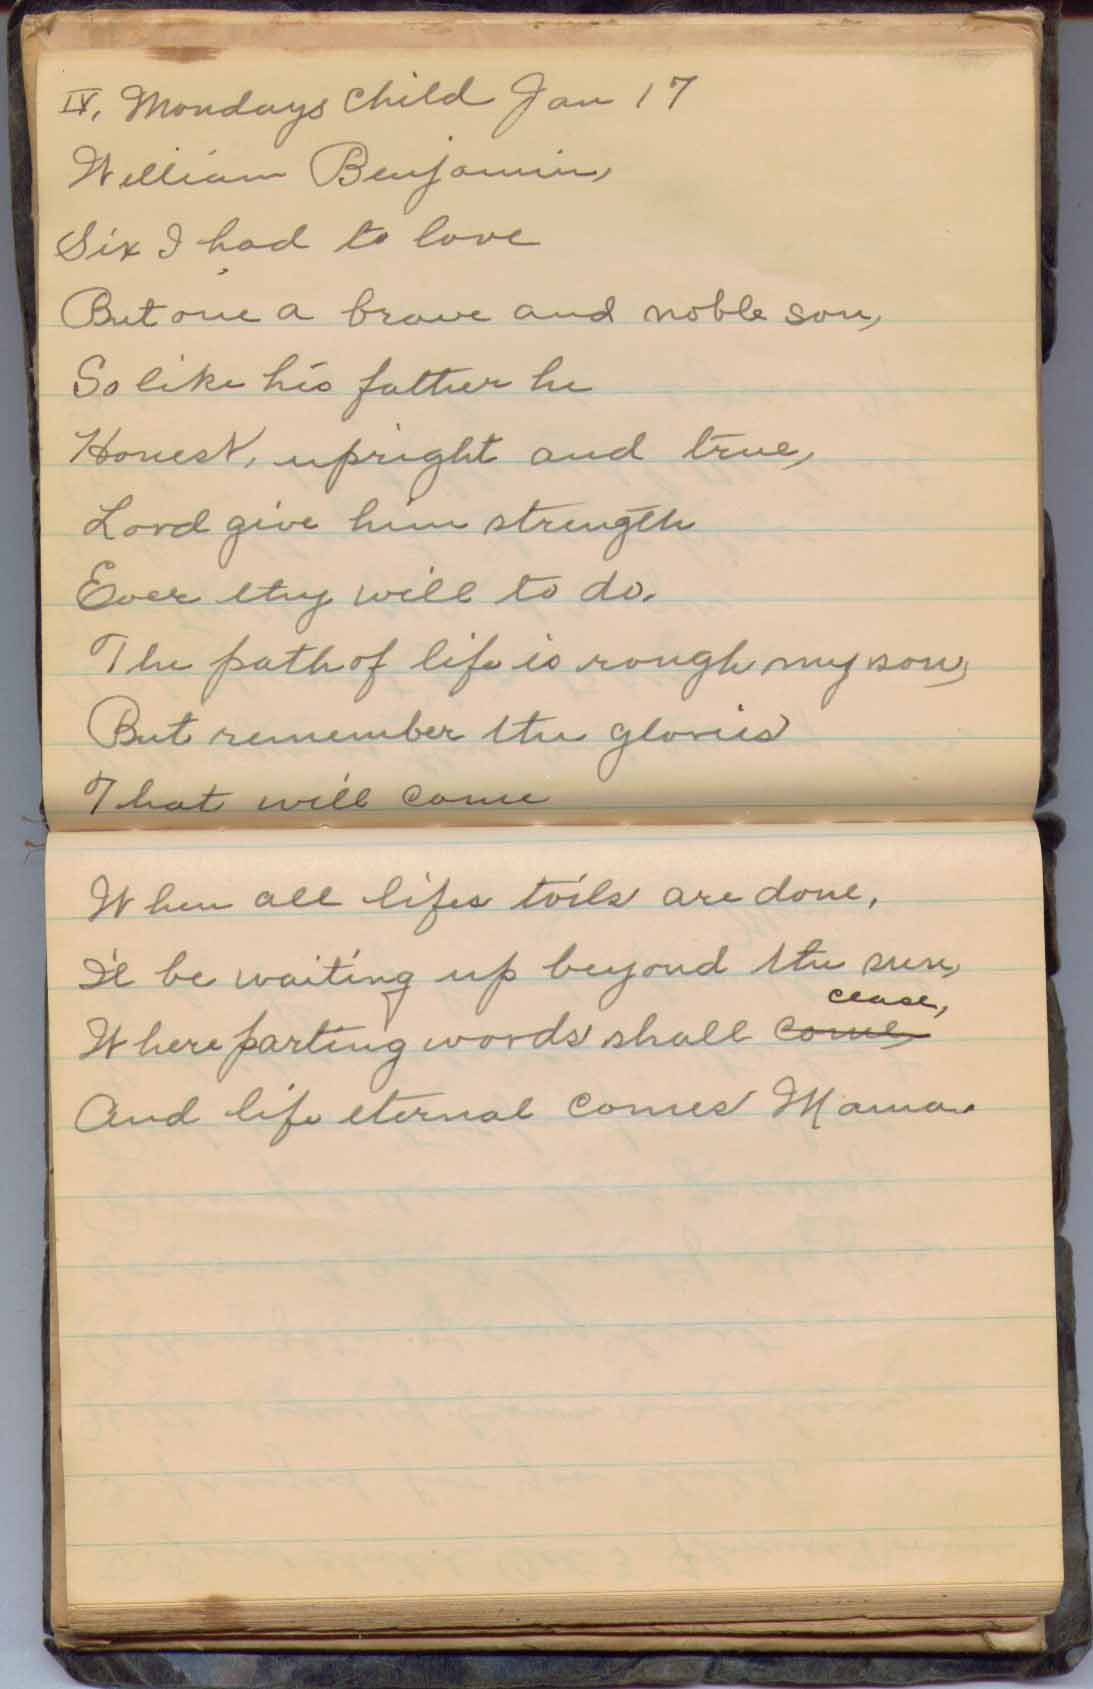 IV. Mondays Child Jan 17
William Benjamin,
Six I had to love
But one a brave and noble son,
So like his father he
Honest, upright and true,
Lord give him strength
Ever thy will to do.
The path of life is rough my son,
But remember the glories
That will come
When all lifes toils are done,
I'l be waiting up beyond the sun,
cease,
Where parting words shall come,
And life eternal comes Mama.